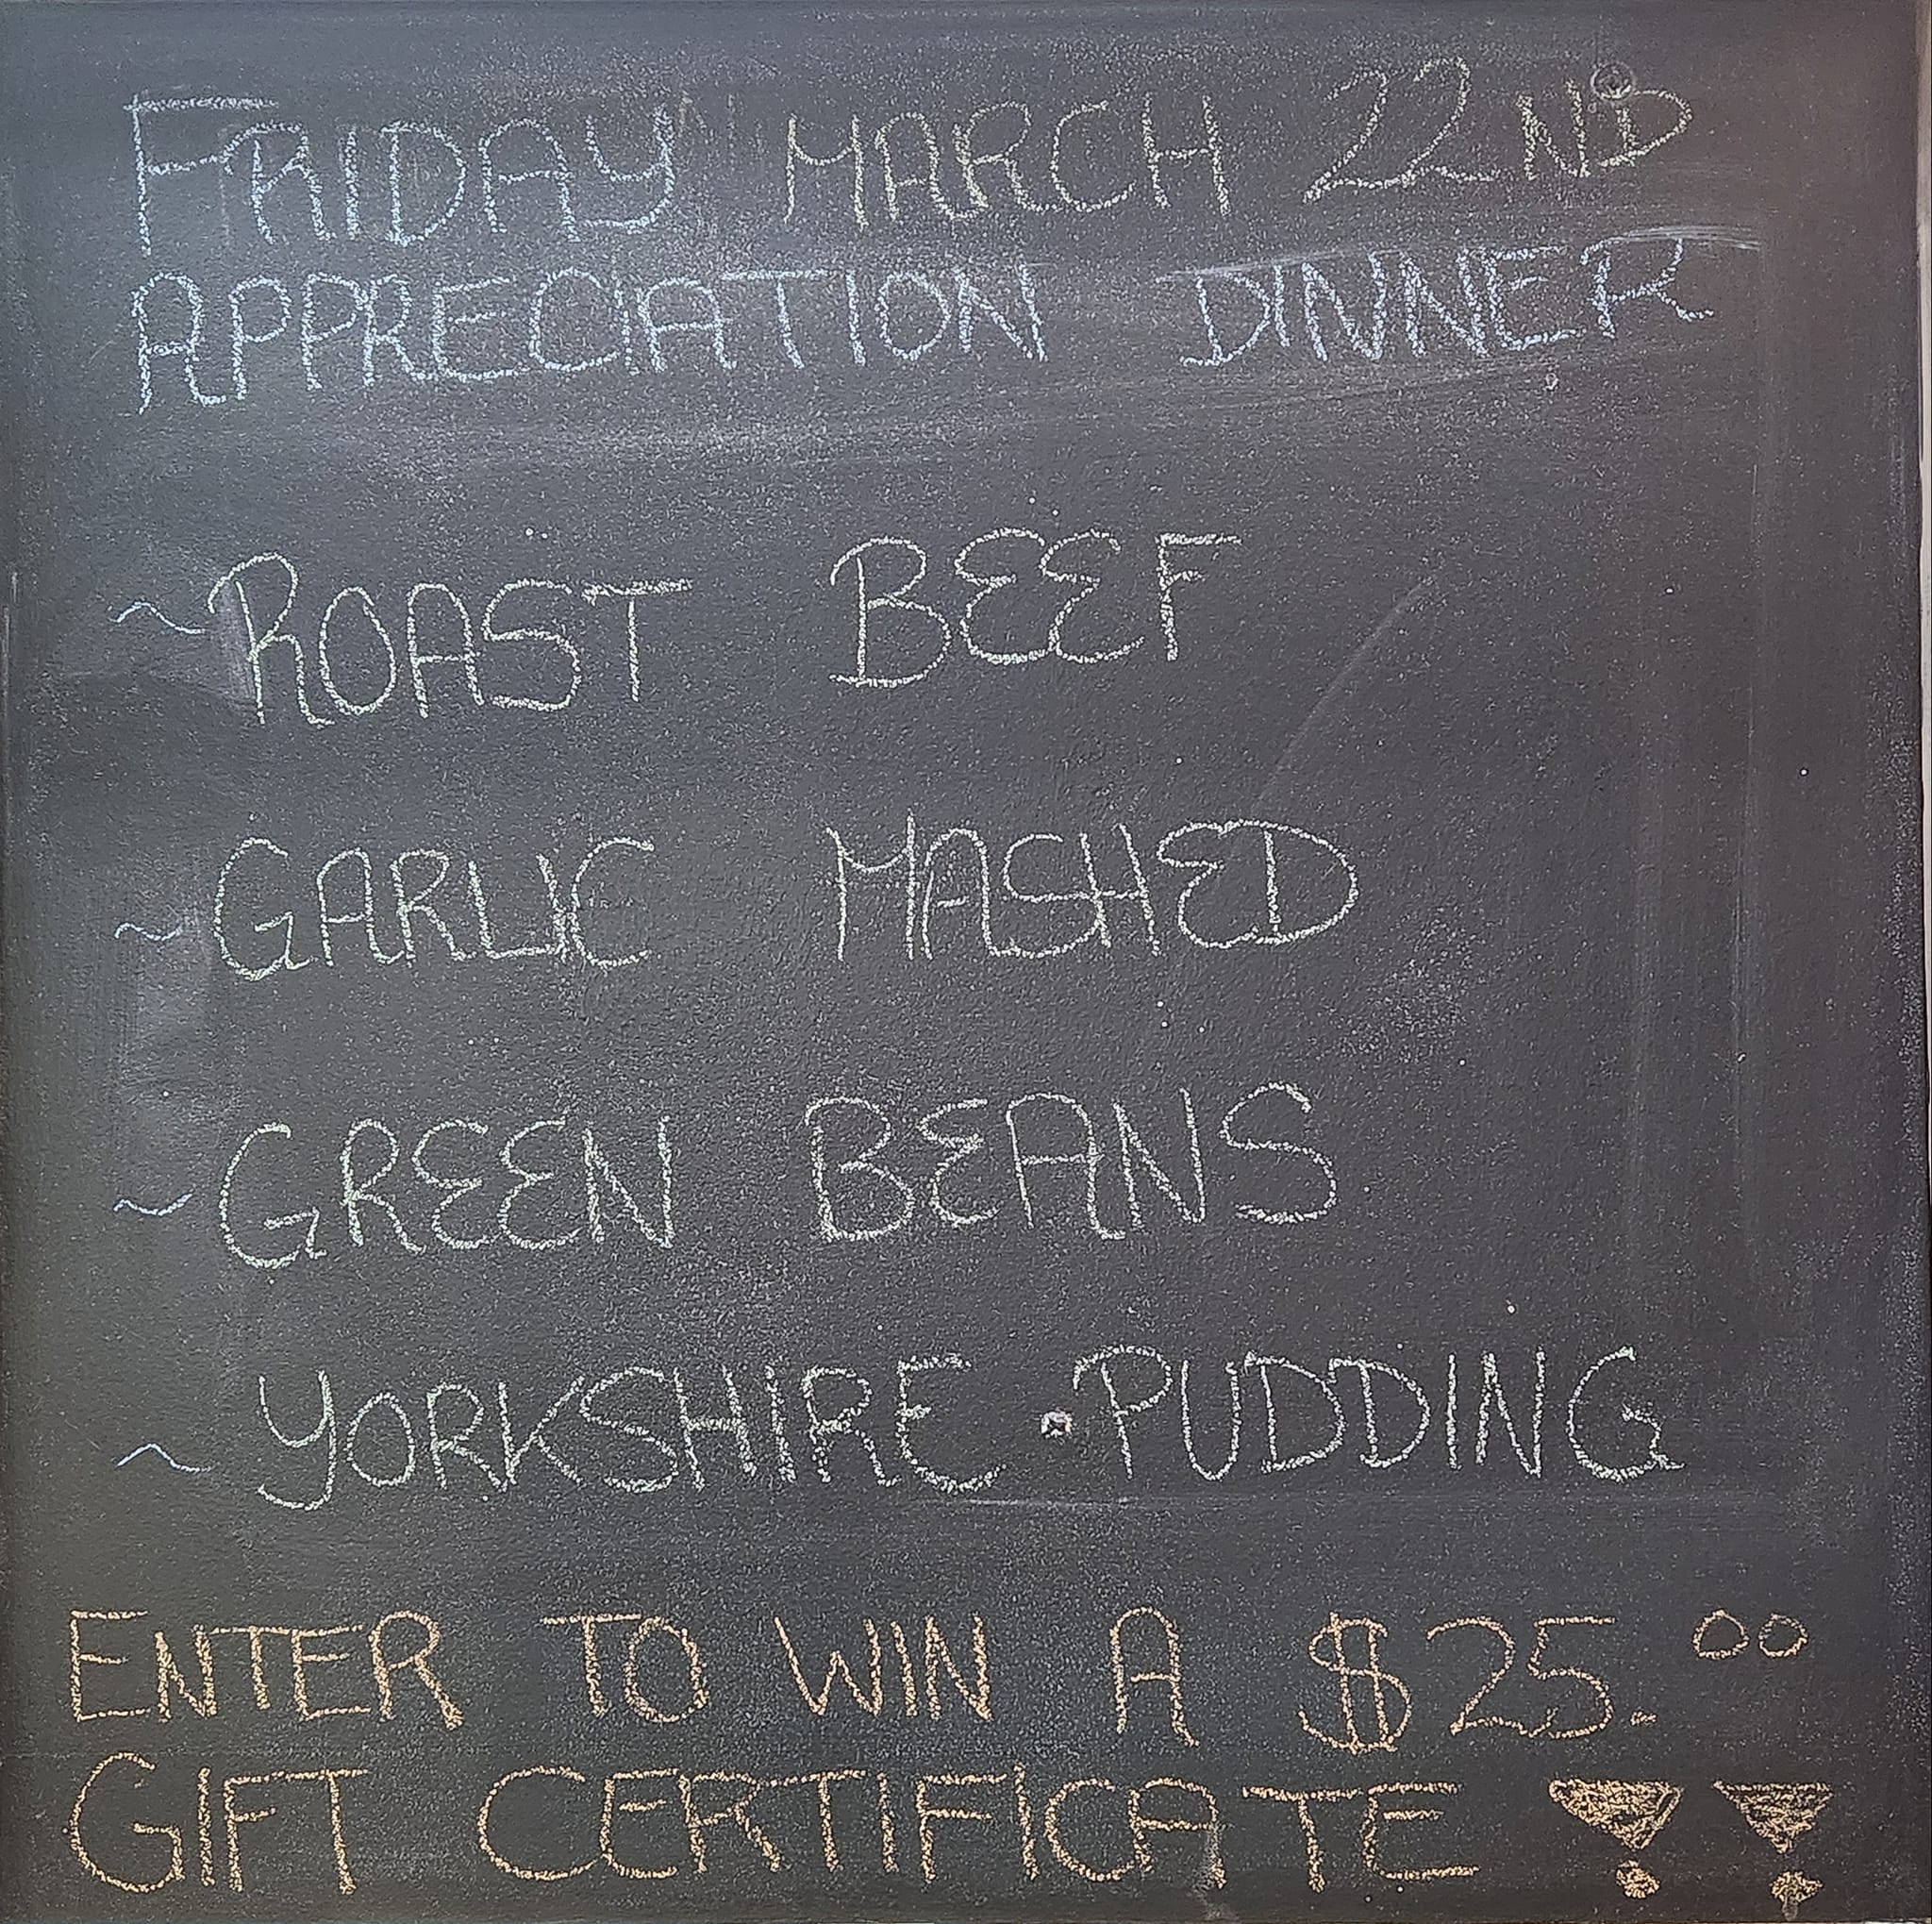 FRIDAY MARCH 22ND
APPRECIATION DINNER
~ROAST BEEF
~GARLIC MASHED
~GREEN BEANS
~YORKSHIRE PUDDING
ENTER TO WIN A $25.00
GIFT CERTIFICATE !!